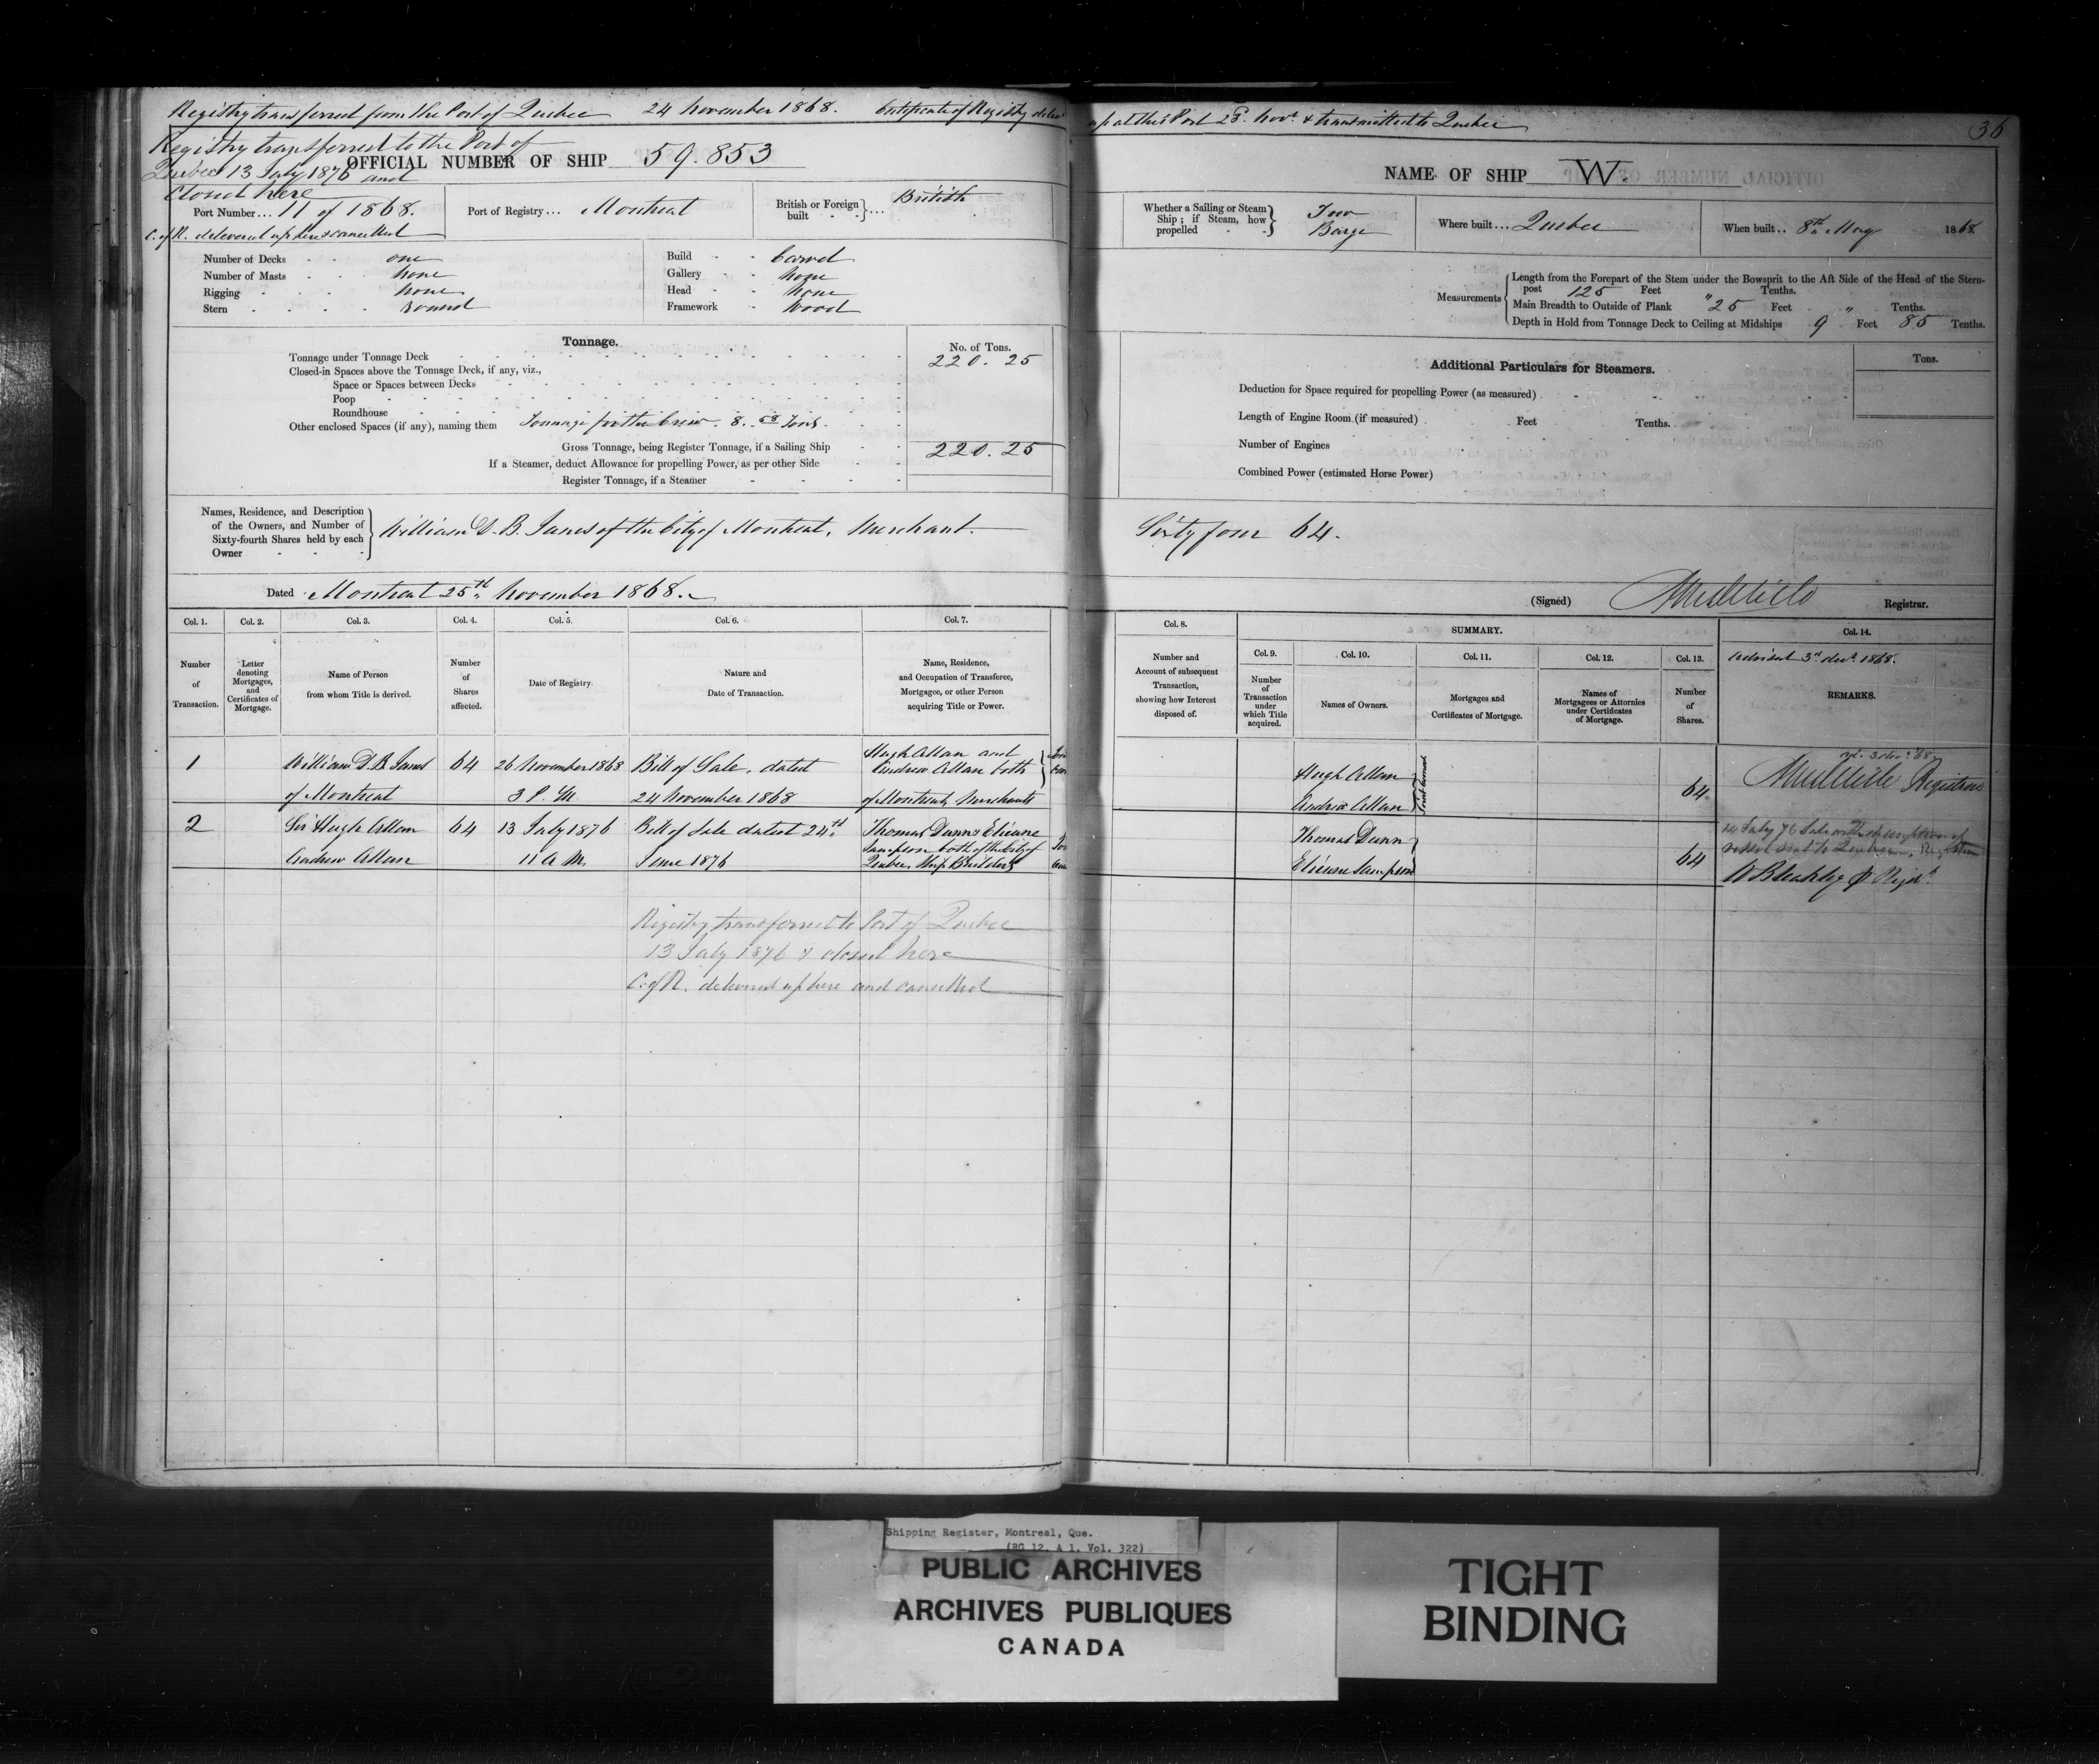 Registry transferred from the Port of Quebec 24 November 1868. Certificate of Registry deliv
up at this Port 25. Novr. & transmitted to Quebec
36
Registry transferred to the Port of
Quebec 13 July 1876 and
Closed here
OFFICIAL NUMBER OF SHIP 59.853
NAME OF SHIP W.
Port Number... 11 of 1868.
C. of R. delivered up here & cancelled
Port of Registry... Montreal
British or Foreign built British
Whether a Sailing or Steam Ship; if Steam, how propelled Tow Barge
Where built... Quebec
When built.. 8th May 1868
Number of Decks one
Number of Masts none
Rigging none
Stern round
Build Carvel
Gallery none
Head none
Framework Wood
Measurements
Length from the Forepart of the Stem under the Bowsprit to the Aft Side of the Head of the Stern-
post 125 Feet " Tenths.
Main Breadth to Outside of Plank 25 Feet " Tenths.
Depth in Hold from Tonnage Deck to Ceiling at Midships 9 Feet 85 Tenths.
Tonnage.
No. of Tons.
Tonnage under Tonnage Deck 220.25
Closed-in Spaces above the Tonnage Deck, if any, viz.,
Space or Spaces between Decks
Poop
Roundhouse
Other enclosed Spaces (if any), naming them Tonnage for the Crew. 8. 68 Tons.
Gross Tonnage, being Register Tonnage, if a Sailing Ship 220.25
If a Steamer, deduct Allowance for propelling Power, as per other Side
Register Tonnage, if a Steamer
Additional Particulars for Steamers.
Tons.
Deduction for Space required for propelling Power (as measured)
Length of Engine Room (if measured) Feet Tenths.
Number of Engines
Combined Power (estimated Horse Power)
Names, Residence, and Description
of the Owners, and Number of
Sixty-fourth Shares held by each
Owner
William D. B. Janes of the City of Montreal, Merchant.
Sixty four 64.
Dated Montreal 25th November 1868.
(Signed) Registrar.
Col. 1. Col. 2. Col. 3. Col. 4. Col. 5. Col. 6. Col. 7.
Number of Transaction.
Letter denoting Mortgages, and Certificates of Mortgage.
Name of Person from whom Title is derived.
Number of Shares affected.
Date of Registry.
Nature and Date of Transaction.
Name, Residence, and Occupation of Transferee, Mortgagee, or other Person acquiring Title or Power.
Col. 8.
Number and Account of subsequent Transaction, showing how Interest disposed of.
SUMMARY.
Col. 9. Col. 10. Col. 11. Col. 12. Col. 13.
Number of Transaction under which Title acquired.
Names of Owners.
Mortgages and Certificates of Mortgage.
Names of Mortgagees or Attornies under Certificates of Mortgage.
Number of Shares.
Col. 14.
Advised 3rd decr. 1868.
REMARKS.
1 William D. B. Janes 64 26 November 1868 Bill of Sale, dated Hugh Allan and
of Montreal 3 P. M. 24 November 1868 Andrew Allan both
of Montreal, Merchants
Hugh Allan
Andrew Allan
Joint Owners
64
Registrar
2 Sir Hugh Allan 64 13 July 1876 Bill of Sale dated 24th Thomas Dunn & Etienne
Andrew Allan 11 A. M. June 1876 Sampson both of the City of
Quebec, Ship Builders
Thomas Dunn
Etienne Sampson
64
14 July 76
Registry transferred to Port of Quebec
13 July 1876 & closed here
C. of R. delivered up here and cancelled
Shipping Register, Montreal, Que.
(RG 12, A 1, Vol. 322)
PUBLIC ARCHIVES
ARCHIVES PUBLIQUES
CANADA
TIGHT
BINDING